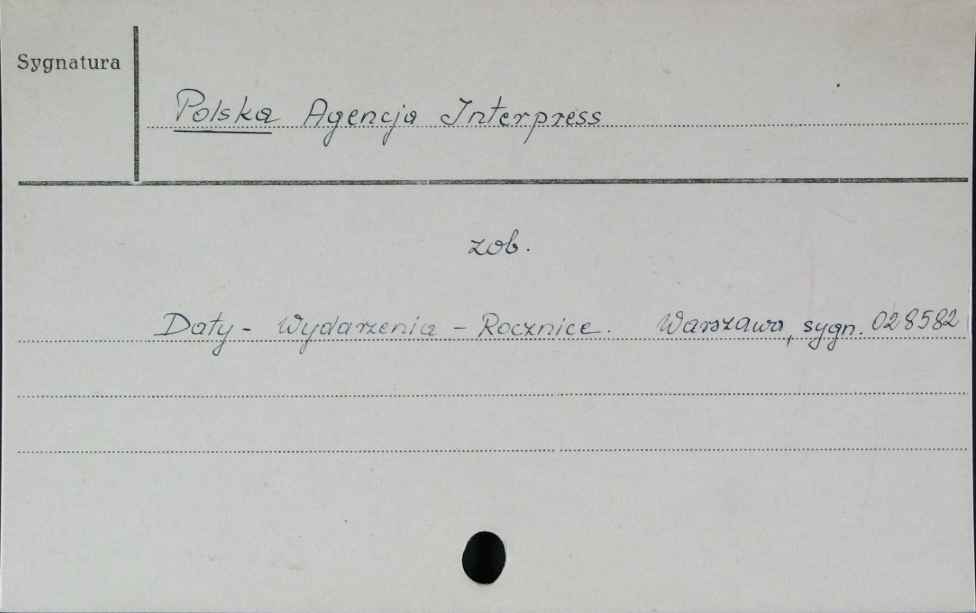 Sygnatura
Polska Agencja Interpress
zob.
Daty - Wydarzenia - Rocznice. Warszawa, sygn. 028582